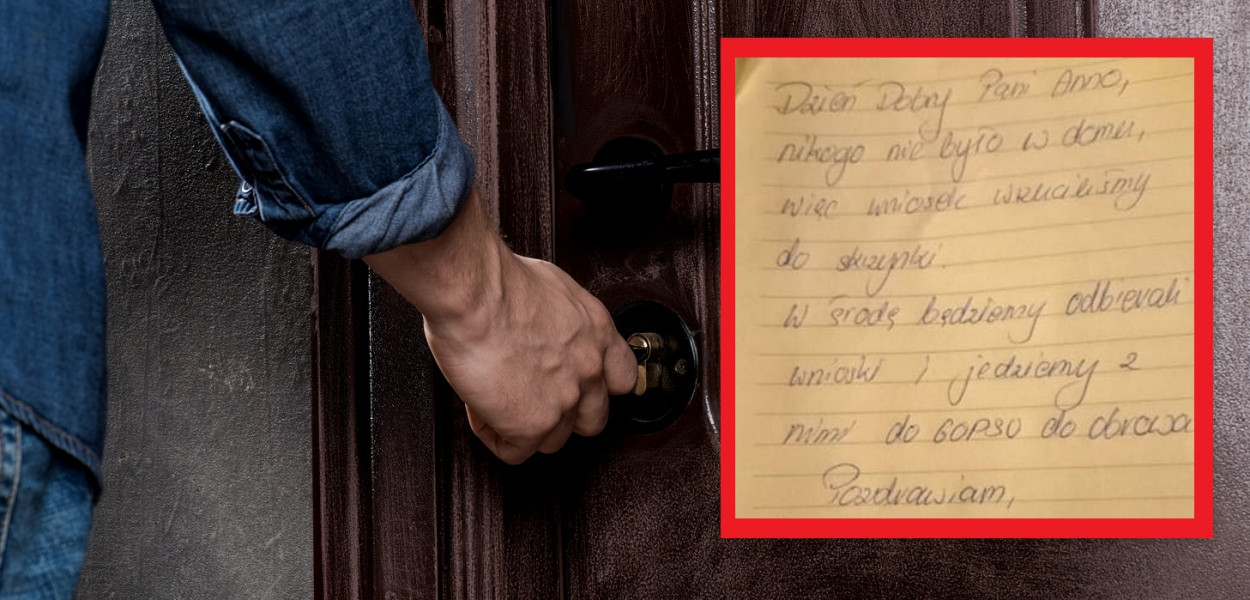 Dzień Dobry Pani Anno,
nikogo nie było w domu,
więc wniosek wrzuciliśmy
do skrzynki.
W środę będziemy odbierali
wnioski i jedziemy z
nimi do GOPSU do Obrowa
Pozdrawiam,